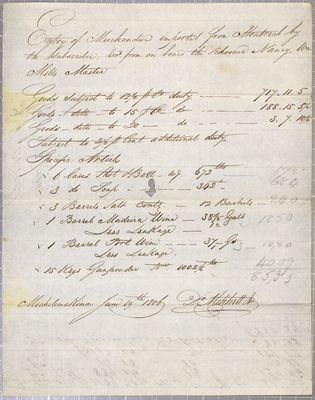 Entry of Merchandise imported from Montreal by
the Subscriber, on board the Schooner Nancy Wm
Mills Master
Goods Subject to 12½ pCt duty 717.11.5
Goods ditto to 15 pCt do 188.15.5½
Goods ditto to 20 do 3.7.10½
Subject to pCent additional duty
Specific Articles
6 Cases Shot & Ball 67 672 lb
3 do Soap 342 lb 684
3 Barrels Salt Contg 12 Bushels 240
1 Barrel Madeira Wine Galls 1850
Less Leakage
1 Barrel Port Wine 37 Gs
Less Leakage
15 Kegs Gunpowder Wt lb 4009
Michilimackinac June 19th 1806 D. Mitchell